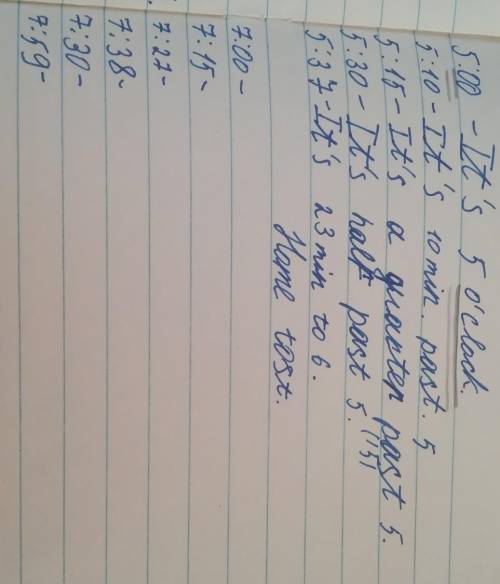 5:00 - It's 5 o'clock.
5:10 - It's 10 min. past. 5
5:15 - It's a quarter past 5.
(15)
5:30 - It's half past 5.
5:37 - It's 23 min to 6.
Home tost.
7:00 -
7:15 -
7:27 -
7:38 -
7:30 -
7:59 -